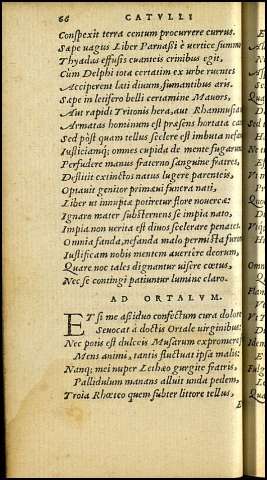 66 CATVLLI
Conspexit terra centum procurrere currus.
Sæpe uagus Liber Parnassi è uertice summo
Thyadas effusis euanteis crinibus egit,
Cum Delphi tota certatim ex urbe ruentes
Acciperent lati diuum, fumantibus aris.
Sæpe in letifero belli certamine Mauors,
Aut rapidi Tritonis hera, aut Rhamnusia
Armatas hominum est præsens hortata
Sed pòst quam tellus scelere est imbuta nefando
Iustíciamq; omnes cupida de mente fugarunt
Perfudere manus fraterno sanguine fratres,
Destitit extinctos natus lugere parenteis,
Optauit genitor primæui funera nati,
Liber ut innuptæ potiretur flore nouercæ:
Ignaro mater substernens se impia nato,
Impia non uerita est diuos scelerare penates
Omnia fanda, nefanda malo permista furore
Iustificam nobis mentem auertêre deorum,
Quare nec tales dignantur uisere cœtus,
Nec se contingi patiuntur lumine claro.
AD ORTALVM.
ETsi me assiduo confectum cura dolore
Seuocat à doctis Ortale uirginibus:
Nec potis est dulceis Musarum expromere
Mens animi, tantis fluctuat ipsa malis:
Nanq; mei nuper Lethæo gurgite fratris,
Pallidulum manans alluit unda pedem,
Troia Rhœteo quem subter littore tellus,